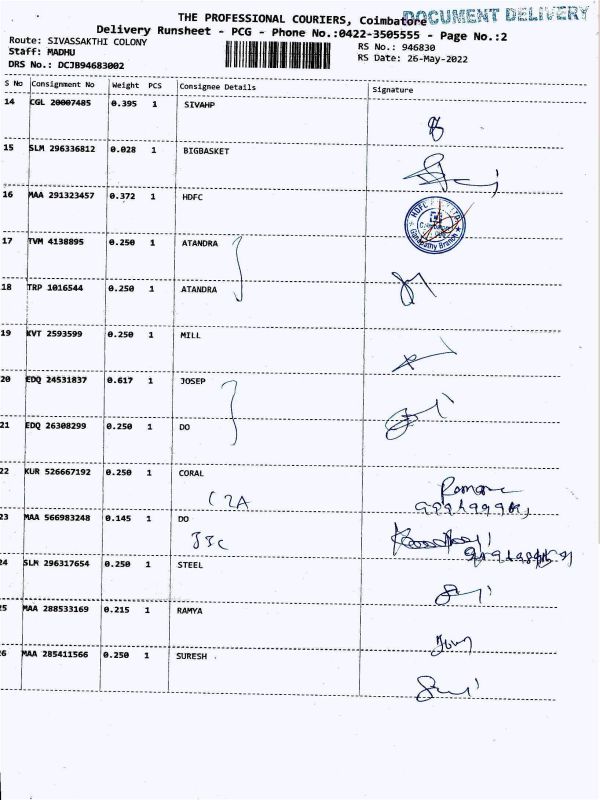 THE PROFESSIONAL COURIERS, Coimbatore DOCUMENT DELIVERY
Delivery Runsheet - PCG - Phone No.:0422-3505555 - Page No.:2
Route: SIVASSAKTHI COLONY
RS No.: 946830
Staff: MADHU
RS Date: 26-May-2022
DRS No.: DCJB94683002
S No Consignment No Weight PCS Consignee Details Signature
14 CGL 20007485 0.395 1 SIVAHP
15 SLM 296336812 0.028 1 BIGBASKET
16 MAA 291323457 0.372 1 HDFC
HDFC
Ganapathy Branch
17 TVM 4138895 0.250 1 ATANDRA
18 TRP 1016544 0.250 1 ATANDRA
19 KVT 2593599 0.250 1 MILL
20 EDQ 24531837 0.617 1 JOSEP
21 EDQ 26308299 0.250 1 DO
22 KUR 526667192 0.250 1 CORAL
23 MAA 566983248 0.145 1 DO
24 SLM 296317654 0.250 1 STEEL
25 MAA 288533169 0.215 1 RAMYA
26 MAA 285411566 0.250 1 SURESH